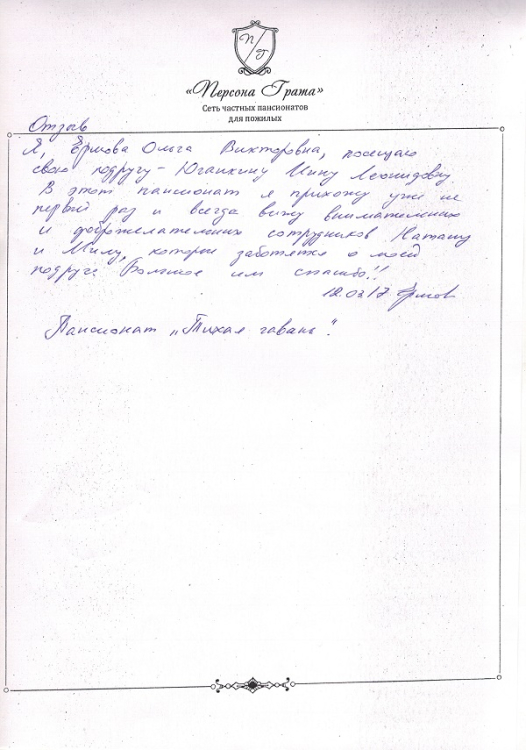 П/Г
«Персона Грата»
Сеть частных пансионатов
для пожилых
Отзыв
Я, Ершова Ольга Викторовна, посещаю
свою подругу - Юганкину Нину Леонидовну
В этот пансионат я прихожу уже не
первый раз и всегда вижу внимательных
и доброжелательных сотрудников Наташу
и Милу, которые заботятся о моей
подруге. Большое им спасибо!!
12.03.17
Пансионат „Тихая гавань".